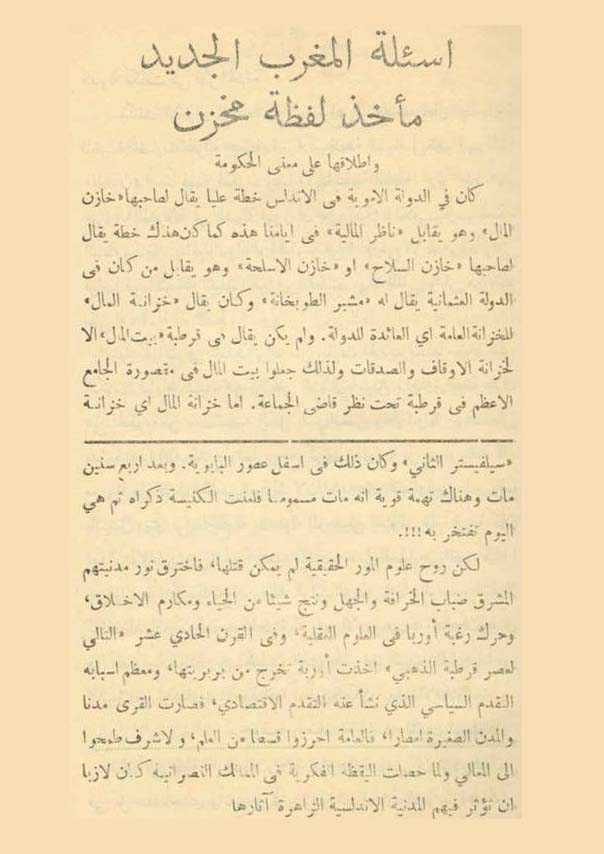 اسئلة المغرب الجديد
مأخذ لفظة مخزن
واطلاقها على معنى الحكومة
كان في الدولة الاموية فى الاندلس خطة عليا يقال لصاحبها «خازن
المال» وهو يقابل «ناظر المالية» فى ايامنا هذه كما كان هناك خطة يقال
لصاحبها «خازن السلاح» او «خازن الاسلحة» وهو يقابل من كان فى
الدولة العثمانية يقال له «مشير الطوبخانة» وكان يقال «خزانة المال»
للخزانة العامة اي العائدة للدولة. ولم يكن يقال فى قرطبة «بيت المال» الا
لخزانة الاوقاف والصدقات ولذلك جعلوا بيت المال فى مقصورة الجامع
الاعظم فى قرطبة تحت نظر قاضى الجماعة. اما خزانة المال اي خزانة
«سيلفيستر الثاني» وكان ذلك فى اسفل عصور البابوية. وبعد اربع سنين
مات وهناك تهمة قوية انه مات مسموما فلعنت الكنيسة ذكراه ثم هي
اليوم تفتخر به!!!.
لكن روح علوم المور الحقيقية لم يمكن قتلها، فاخترق نور مدنيتهم
المشرق ضباب الخرافة والجهل ونتج شيئا من الحياء ومكارم الاخلاق،
وحرك رغبة أوربا فى العلوم العقلية، وفى القرن الحادي عشر «التالي
لعصر قرطبة الذهبي» اخذت أوربة تخرج من بربريتها، ومعظم اسبابه
التقدم السياسي الذي نشأ عنه التقدم الاقتصادي، فصارت القرى مدنا
والمدن الصغيرة امصارا، فالعامة احرزوا قسطا من العلم، والاشرف طمحوا
الى المعالي ولما حصلت اليقظة الفكرية فى الممالك النصرانية كان لازبا
ان تؤثر فيهم المدنية الاندلسية الزاهرة آثارها